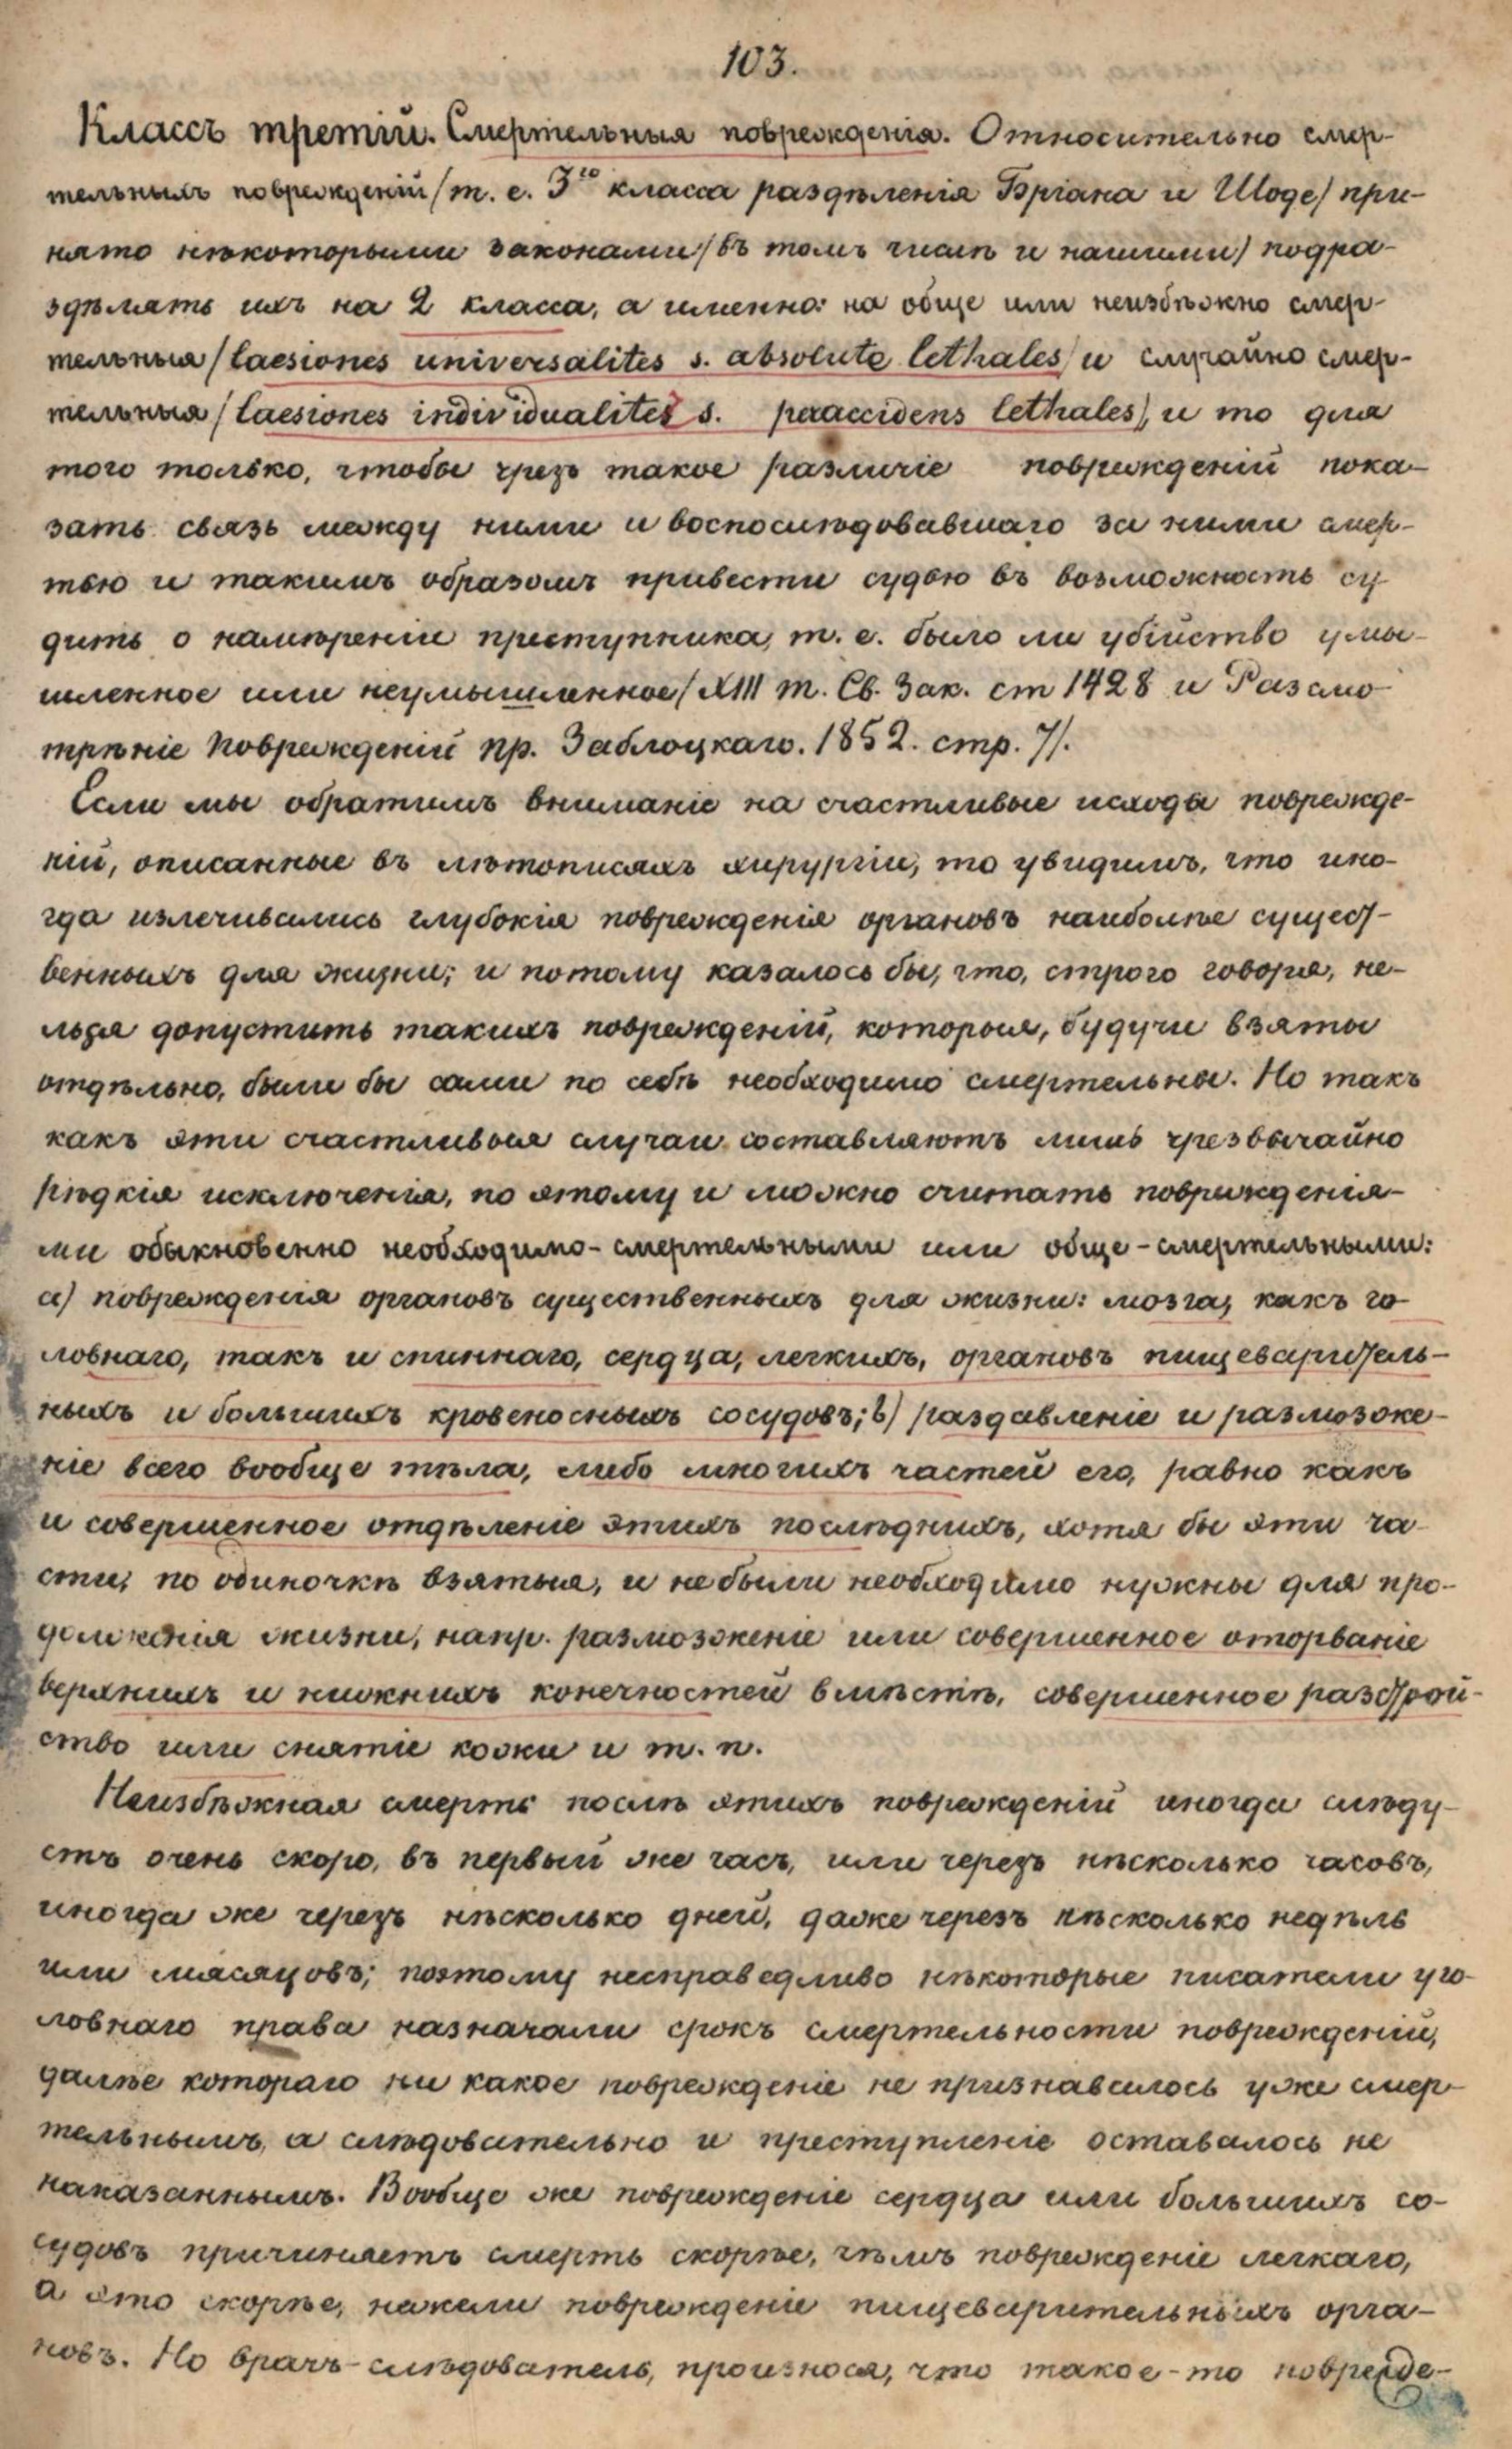 103.
Классъ третій. Смертельныя поврежденія. Относительно смер-
тельныхъ поврежденій /т. е. 3го класса раздѣленія Бріана и Шоде/ при-
нято нѣкоторыми законами /въ томъ числѣ и нашими/ подра-
здѣлять ихъ на 2 класса, а именно: на обще или неизбѣжно смер-
тельныя /laesiones universalites s. absolute lethales/ и случайно смер-
тельныя /laesiones individualites s. peraccidens lethales/, и то для
того только, чтобы чрезъ такое различіе поврежденій пока-
зать связь между ними и воспослѣдовавшаго за ними смер-
тью и такимъ образомъ привести судью въ возможность су-
дить о намѣреніи преступника, т. е. было ли убійство умы-
шленное или неумышленное /XIII т. Св. Зак. ст 1428 и Разсмо-
трѣніе поврежденій пр. Заблоцкаго. 1852. стр. 7/.
Если мы обратимъ вниманіе на счастливые исходы поврежде-
ній, описанные въ лѣтописяхъ хирургіи, то увидимъ, что ино-
гда излечивались глубокія поврежденія органовъ наиболѣе сущест-
венныхъ для жизни; и потому казалось бы, что, строго говоря, не-
льзя допустить такихъ поврежденій, которыя, будучи взяты
отдѣльно, были бы сами по себѣ необходимо смертельны. Но такъ
какъ эти счастливыя случаи составляютъ лишь чрезвычайно
рѣдкія исключенія, по этому и можно считать поврежденія-
ми обыкновенно необходимо-смертельными или обще-смертельными:
а) поврежденія органовъ существенныхъ для жизни: мозга, какъ го-
ловнаго, такъ и спиннаго, сердца, легкихъ, органовъ пищеваритель-
ныхъ и большихъ кровеносныхъ сосудовъ; b) раздавленіе и размозже-
ніе всего вообще тѣла, либо многихъ частей его, равно какъ
и совершенное отдѣленіе этихъ послѣднихъ, хотя бы эти ча-
сти, по одиночкѣ взятыя, и не были необходимо нужны для про-
долженія жизни, напр. размозженіе или совершенное оторваніе
верхнихъ и нижнихъ конечностей вмѣстѣ, совершенное разстрой-
ство или снятіе кожи и т. п.
Неизбѣжная смерть послѣ этихъ поврежденій иногда слѣду-
етъ очень скоро, въ первый же часъ, или черезъ нѣсколько часовъ,
иногда же черезъ нѣсколько дней, даже черезъ нѣсколько недѣль
или мясяцовъ; поэтому несправедливо нѣкоторые писатели уго-
ловнаго права назначали срокъ смертельности поврежденій,
далѣе котораго ни какое поврежденіе не признавалось уже смер-
тельнымъ, а слѣдовательно и преступленіе оставалось не
наказаннымъ. Вообще же поврежденіе сердца или большихъ со-
судовъ причиняетъ смерть скорѣе, чѣмъ поврежденіе легкаго,
а это скорѣе, нежели поврежденіе пищеварительныхъ орга-
новъ. Но врачъ-слѣдователь, произнося, что такое-то поврежде-